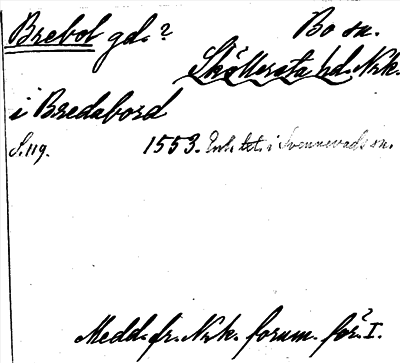 Brebol gd. ? Bo sn.
Sköllersta hd. Nrk.
i Bredabord
S. 119. 1553. Enl. tet. i Svennevads sn.
Medd. fr. Nrk. fornm. för. I.